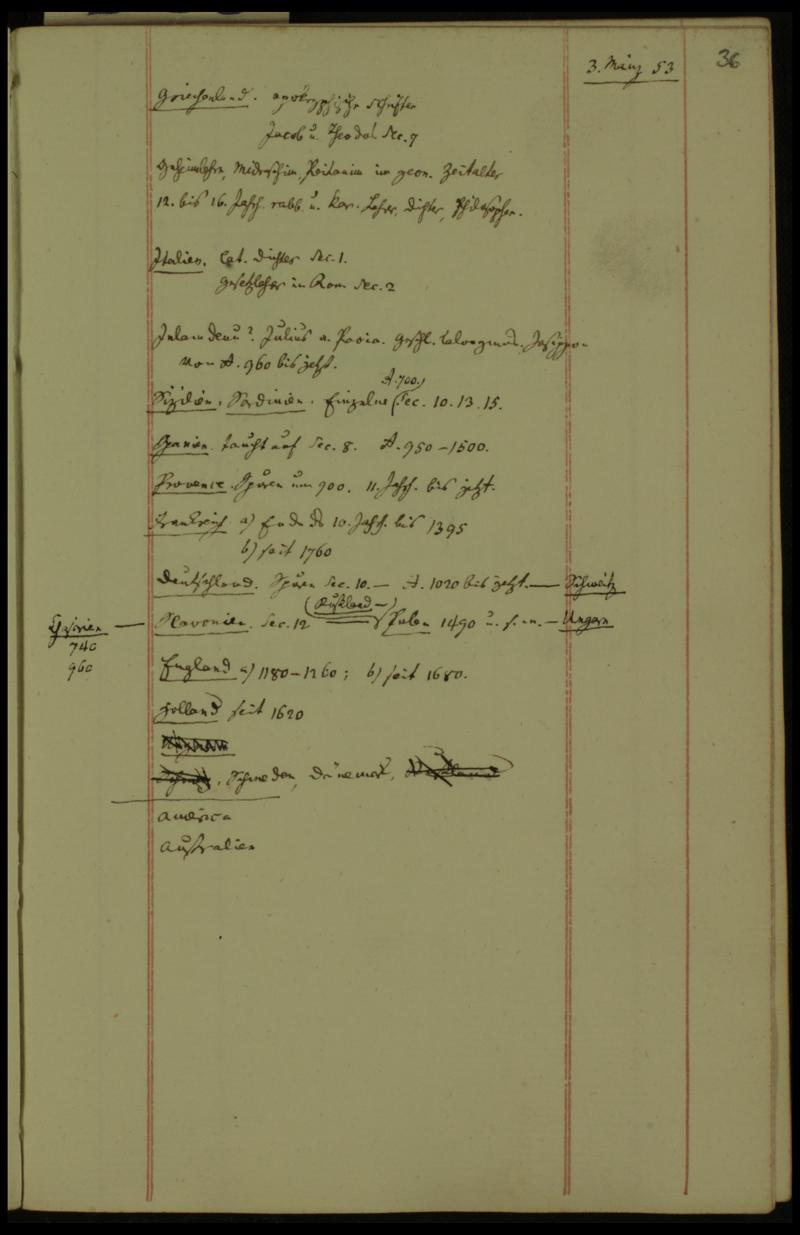 36
3. März 53
Griechenland. apokryphische Schriften
Jacob u. Theodos. Sec. 7
Geheimlehre, Midraschim, Peitanim im geon. Zeitalter
12. bis 16. Jahrh. rabb. u. kar. Lehrer, Dichter, Philosophen.
Italien. Lat. Dichter Sec. 1.
Gesetzlehrer in Rom Sec. 2
Julius a. Pavia. Josippon
von A. 960 bis jetzt.
A. 700.)
Sizilien, Sardinien. Einzelne (Sec. 10. 13. 15.
Spanien taucht auf Sec. 8. A. 950–1500.
Provence. Spuren um 900. 11. Jahrh. bis jetzt.
Frankreich a) Ende des 10. Jahrh. bis 1395
b) seit 1760
Deutschland. Spuren Sec. 10. — A. 1020 bis jetzt. — Schweitz
(Rußland —)
Slavonien. Sec. 12 — Polen 1490 u. f. — Ungarn
740
960
England a) 1180–1260; b) seit 1680.
Holland seit 1620
Schweden, Dänemark,
America
Australien